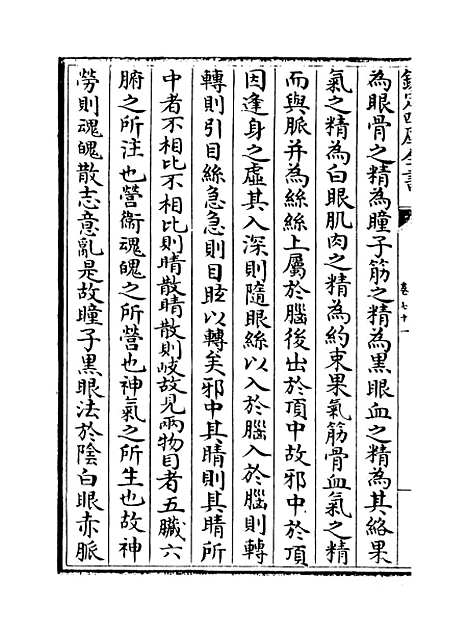 欽定四庫全書
卷七十一
為眼骨之精為瞳子筋之精為黒眼血之精為其絡果
氣之精為白眼肌肉之精為約束果氣筋骨血氣之精
而與脈并為絲絲上屬於腦後出於頂中故邪中於頂
因逢身之虛其入深則隨眼絲以入於腦入於腦則轉
轉則引目絲急急則目眩以轉矣邪中其睛則其睛所
中者不相比不相比則睛散睛散則岐故見兩物目者五臟六
腑之所注也營衛魂魄之所營也神氣之所生也故神
勞則魂魄散志意亂是故瞳子黒眼法於陰白眼赤脈